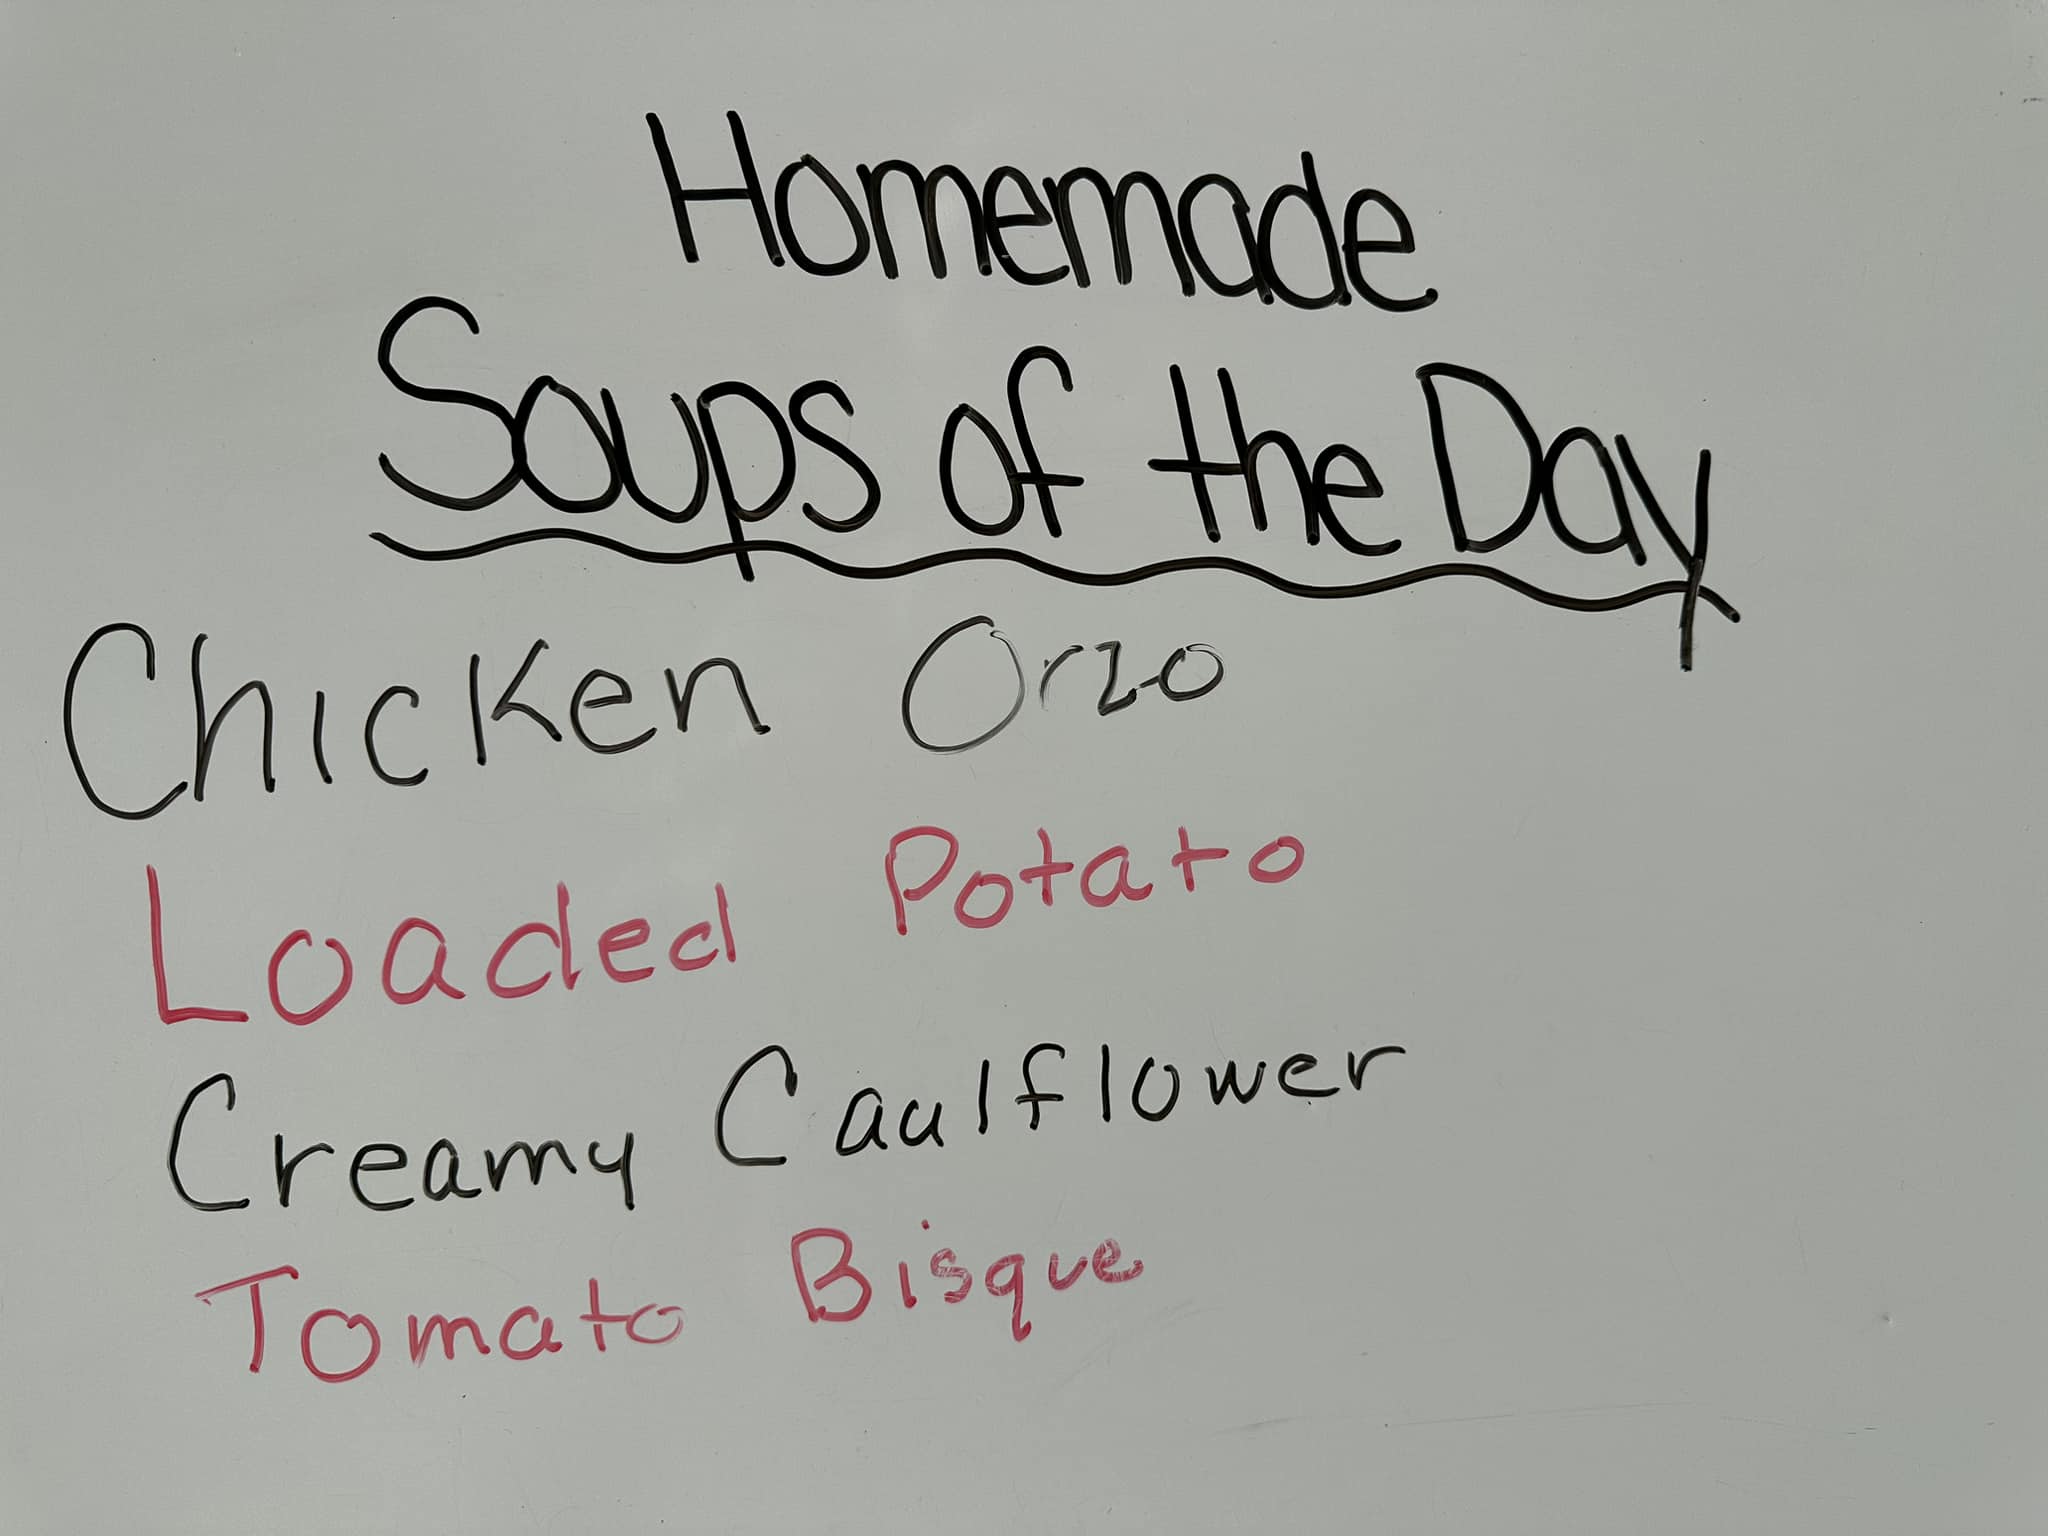 Homemade
Soups of the Day
Chicken Orzo
Loaded Potato
Creamy Caulflower
Tomato Bisque